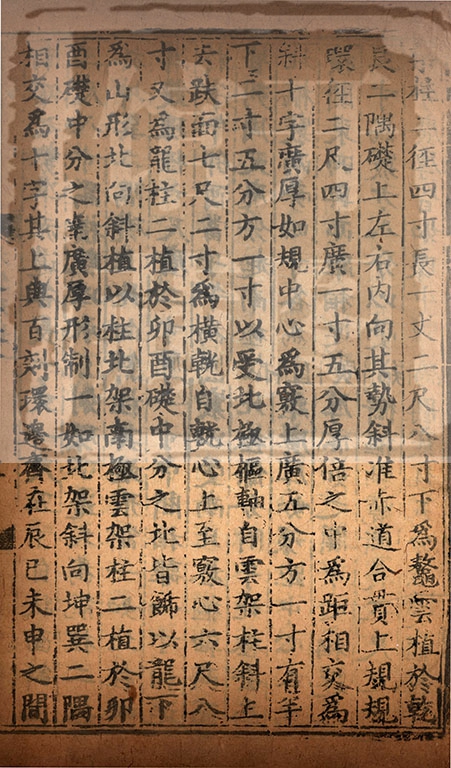 柱二徑四寸長一丈二尺八寸下爲鼇雲植於乾
艮二隅礎上左右內向其勢斜准赤道合貫上規規
環徑二尺四寸廣一寸五分厚倍之中爲距相交爲
斜十字廣厚如規中心爲竅上廣五分方一寸有半
下二寸五分方一寸以受北極樞軸自雲架柱斜上
去趺面七尺二寸爲橫輄自輄心上至竅心六尺八
寸又爲龍柱二植於卯酉礎中分之北皆飾以龍下
爲山形北向斜植以柱北架南極雲架柱二植於卯
酉礎中分之南廣厚形制一如北架斜向坤巽二隅
相交爲十字其上與百刻環邊齊在辰巳未申之間